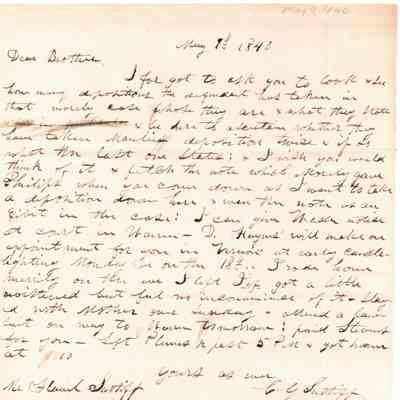 May 9 1840
May 9th 1840
Dear Brother,
I for got to ask you to look & see
how many depositions the defendant has taken in
that Morely case whose they are & what they state
& be sure to ascertain whether they
have taken deposition twice & if so
what the last one States; & I wish you would
think of it & fetch the note which Morely gave
Philips when you come down as I want to take
a deposition down here & want the note as an
in the case: I can give notice
at cort in Warren - D. will make an
appointment for you in Vernon at early candle
lighting Monday Eve on the 18th. I rode home
on the eve I left Jef. got a little
but feel no inconvenience of it - Stay
ed with Mother over Sunday - attend a law
suit on way to Warren tomorrow; paid Stewart
for you - Left Plums ½ past 5 PM & got home
at 10
Yours as ever
Mr Flavel Sutliff C. G. Sutliff